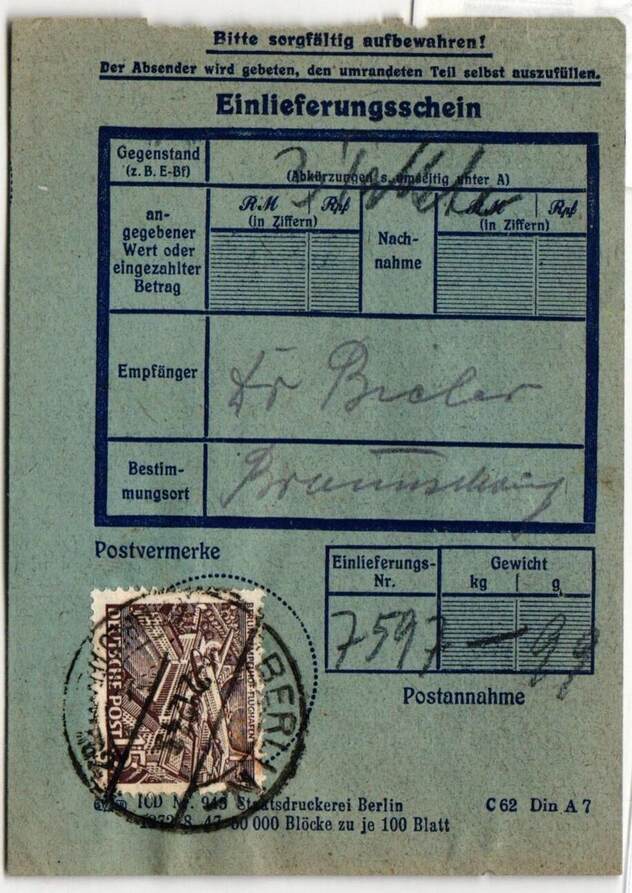 Bitte sorgfältig aufbewahren!
Der Absender wird gebeten, den umrandeten Teil selbst auszufüllen.
Einlieferungsschein
Gegenstand
(z. B. E-Bf)
(Abkürzungen s. umseitig unter A)
an-
gegebener
Wert oder
eingezahlter
Betrag
RM Rpf
(in Ziffern)
Nach-
nahme
RM Rpf
(in Ziffern)
Empfänger
Dr Bieler
Bestim-
mungsort
Braunschweig
Postvermerke
Einlieferungs-
Nr.
7597
Gewicht
kg g
Postannahme
DEUTSCHE POST
15
BERLIN
Staatsdruckerei Berlin
000 Blöcke zu je 100 Blatt
C 62 Din A 7